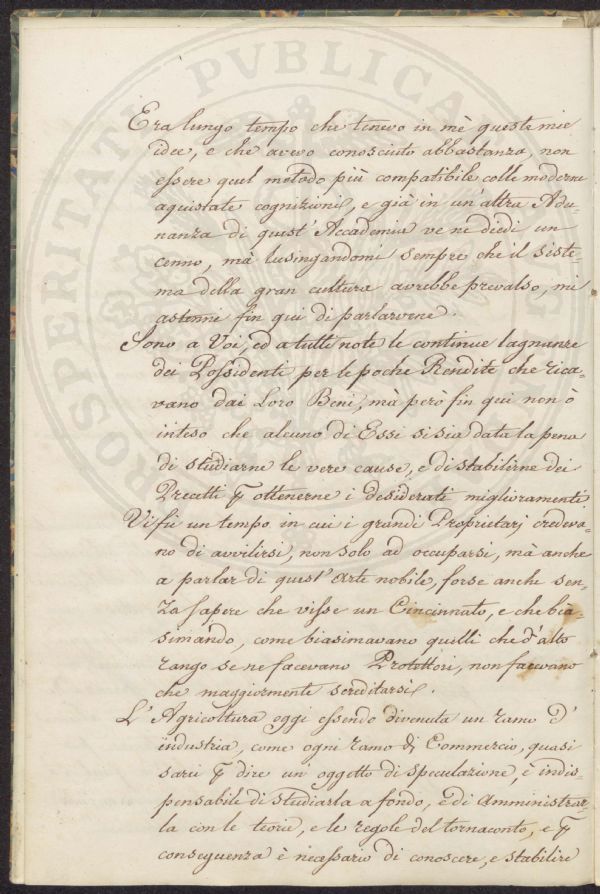 PROSPERITATI PVBLICAE AVGENDAE
Era lungo tempo che tenevo in mè queste mie
idee, e che avevo conosciuto abbastanza, non
essere quel metodo più compatibile colle moderne
aquistate cognizioni, e già in un'altra Adu-
nanza di quest'Accademia ve ne diedi un
cenno, mà lusingandomi sempre che il siste-
ma della gran cultura avrebbe prevalso, mi
astenni fin qui di parlarvene.
Sono a Voi, ed a tutti note le continue lagnanze
dei Possidenti per le poche Rendite che rica-
vano dai Loro Beni, mà però fin qui non ò
inteso che alcuno di Essi si sia data la pena
di studiarne le vere cause, e di stabilirne dei
Precetti p ottenerne i desiderati miglioramenti
Vi fù un tempo in cui i grandi Proprietarj credeva-
no di avvilirsi, non solo ad occuparsi, mà anche
a parlar di quest'arte nobile, forse anche sen-
za sapere che visse un Cincinnato, e che bia-
simando, come biasimavano quelli che d'alto
rango se ne facevano Protettori, non facevano
che maggiormente screditarsi.
L'Agricoltura oggi essendo divenuta un ramo d'
industria, come ogni ramo di Commercio, quasi
sarei p dire un oggetto di speculazione, è indis-
pensabile di studiarla a fondo, e di amministrar-
la con le teorie, e le regole del tornaconto, e p
conseguenza è necessario di conoscere, e stabilire